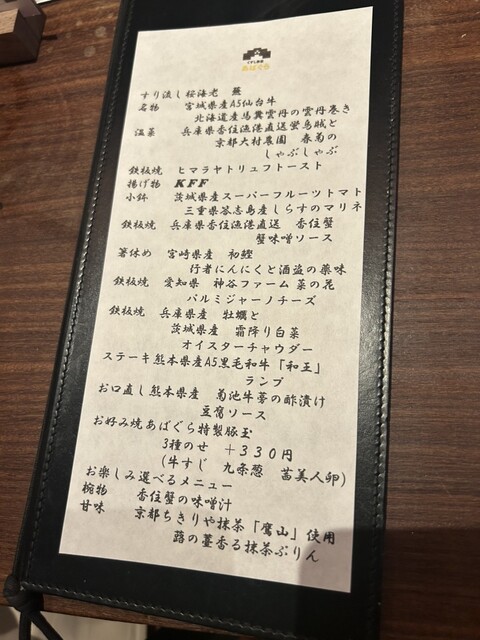 あばぐら
すり流し桜海老 蕪
名物 宮城県産A5仙台牛
北海道産馬糞雲丹の雲丹巻き
温菜 兵庫県香住漁港直送蛍烏賊と
京都大村農園 春菊の
しゃぶしゃぶ
鉄板焼 ヒマラヤトリュフトースト
揚げ物 KFF
小鉢 茨城県産スーパーフルーツトマト
三重県答志島産しらすのマリネ
鉄板焼 兵庫県香住漁港直送 香住蟹
蟹味噌ソース
箸休め 宮崎県産 初鰹
行者にんにくと酒盗の薬味
鉄板焼 愛知県 神谷ファーム 菜の花
パルミジャーノチーズ
鉄板焼 兵庫県産 牡蠣と
茨城県産 霜降り白菜
オイスターチャウダー
ステーキ熊本県産A5黒毛和牛「和王」
ランプ
お口直し熊本県産 菊池牛蒡の酢漬け
豆腐ソース
お好み焼あばぐら特製豚玉
3種のせ +330円
(牛すじ 九条葱 茜美人卵)
お楽しみ選べるメニュー
椀物 香住蟹の味噌汁
甘味 京都ちきりや抹茶「鷹山」使用
蕗の薹香る抹茶ぷりん